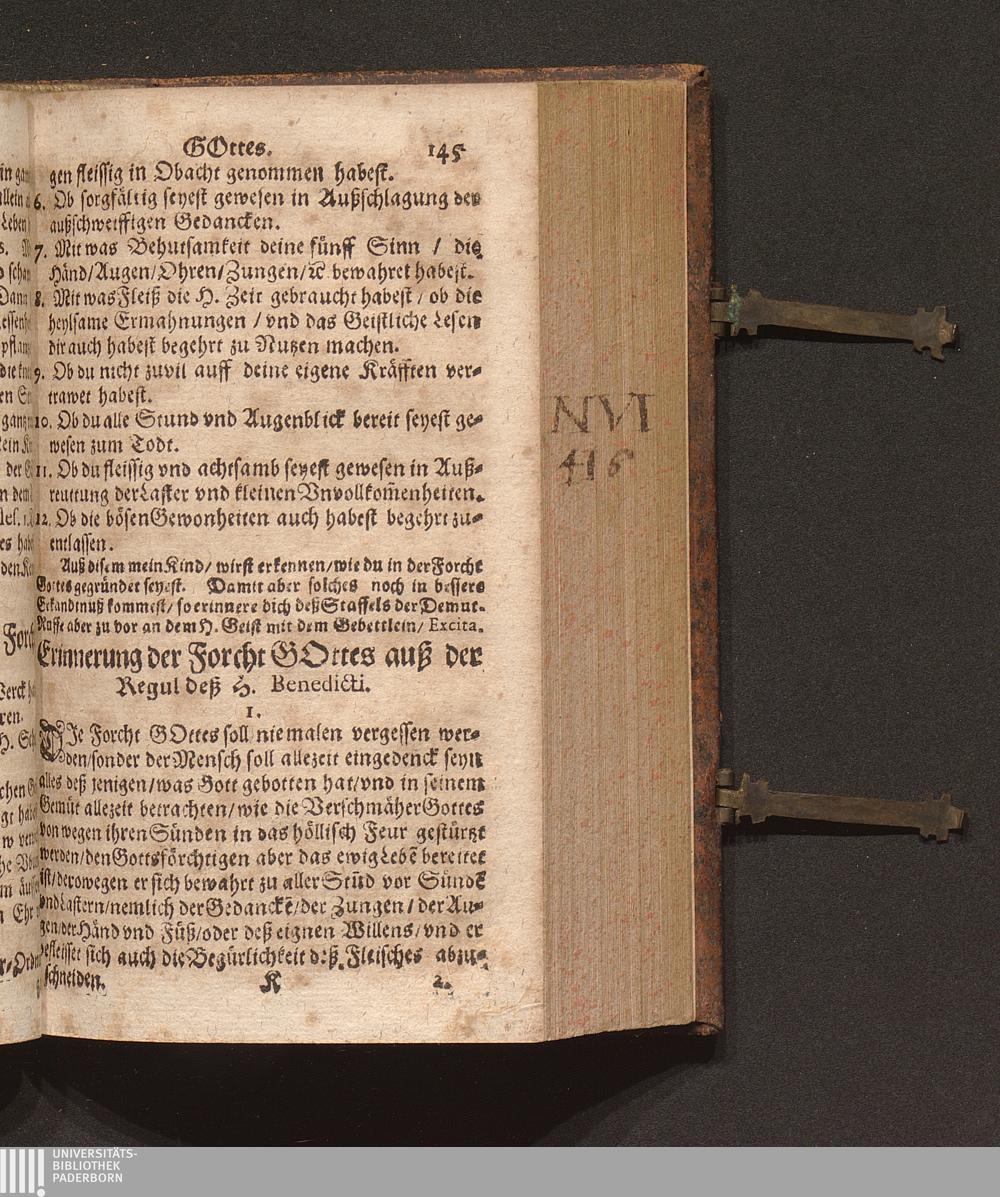 GOttes. 145
gen fleissig in Obacht genommen habest.
6. Ob sorgfältig seyest gewesen in Außschlagung der
außschweiffigen Gedancken.
7. Mit was Behutsamkeit deine fünff Sinn / die
Händ/Augen/Ohren/Zungen/ꝛc bewahret habest.
8. Mit was Fleiß die H. Zeit gebraucht habest / ob die
heylsame Ermahnungen / vnd das Geistliche Lesen
dir auch habest begehrt zu Nutzen machen.
9. Ob du nicht zuvil auff deine eigene Kräfften ver-
trawet habest.
10. Ob du alle Stund vnd Augenblick bereit seyest ge-
wesen zum Todt.
11. Ob du fleissig vnd achtsamb seyest gewesen in Auß-
reuttung der Laster vnd kleinen Vnvollkom̃enheiten.
12. Ob die bösen Gewonheiten auch habest begehrt zu-
entlassen.
Auß disem mein Kind/ wirst erkennen/wie du in der Forcht
Gottes gegründet seyest. Damit aber solches noch in bessere
Erkandtnuß kommest/ so erinnere dich deß Staffels der Demut.
Ruffe aber zu vor an dem H. Geist mit dem Gebettlein/ Excita.
Erinnerung der Forcht GOttes auß der
Regul deß H. Benedicti.
1.
DIe Forcht GOttes soll niemalen vergessen wer-
den/sonder der Mensch soll allezeit eingedenck seyn
alles deß jenigen/was Gott gebotten hat/vnd in seinem
Gemüt allezeit betrachten/wie die Verschmäher Gottes
von wegen ihren Sünden in das höllisch Feur gestürtzt
werden/den Gottsförchtigen aber das ewig Lebẽ bereitet
ist/derowegen er sich bewahrt zu aller Stũd vor Sündẽ
vnd Lastern/nemlich der Gedanckẽ/der Zungen/ der Au-
gen/der Händ vnd Füß/oder deß eignen Willens/vnd er
befleisset sich auch die Begürlichkeit deß Fleisches abzu-
schneiden.
K 2.
NVI
416
UNIVERSITÄTS-
BIBLIOTHEK
PADERBORN